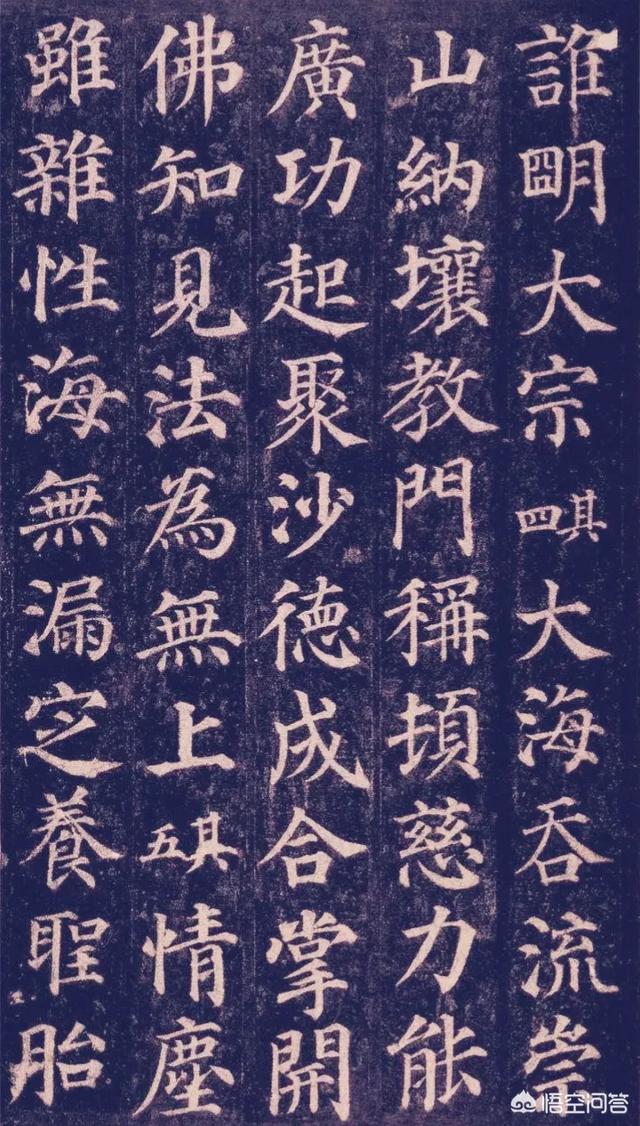 誰明大宗其四大海吞流崇
山納壤教門稱頓慈力能
廣功起聚沙德成合掌開
佛知見法為無上其五情塵
雖雜性海無漏定養聖胎
悟空问答